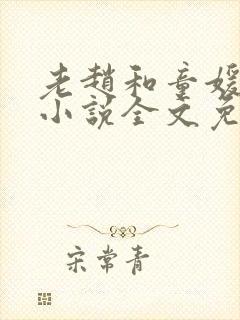 老赵和童媛
小説全文免
宋常青